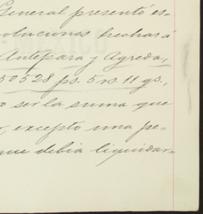 General presentó es-
oluciones hechas á
Antepara y Agreda,
50528 ps. 5 rs. 11 gs.,
o ser la suma que
, excepto una pe-
que debia liquidar-